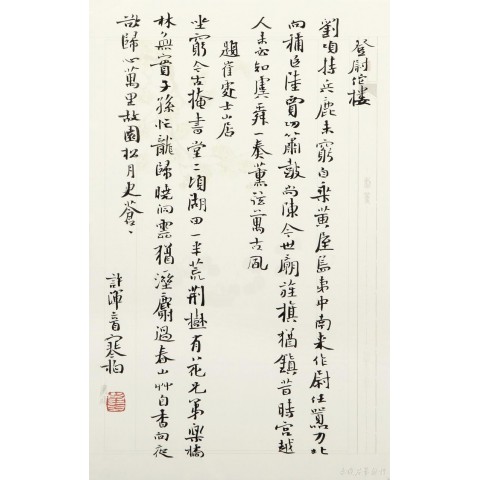 登尉佗樓
劉項持兵鹿未窮自乘黃屋島夷中南來作尉任囂力北
向稱臣陸賈功簫鼓尚陳今世廟旌旗猶鎮昔時宮越
人未必知虞舜一奏薰弦萬古風
題崔處士山居
坐窮今古掩書堂二頃湖田一半荒荊樹有花兄弟樂橘
林無實子孫忙龍歸曉洞雲猶溼麝過春山艸自香向夜
欲歸心萬里故園松月更蒼〻
許渾